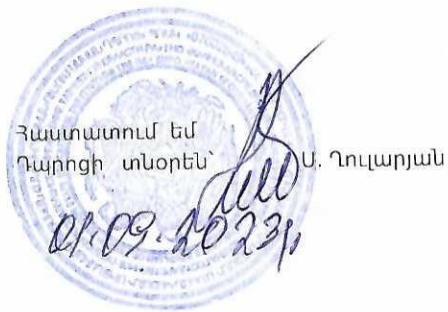 Հաստատում եմ
Դպրոցի տնօրեն՝ Ս. Ղուլարյան
01.09.2023թ.